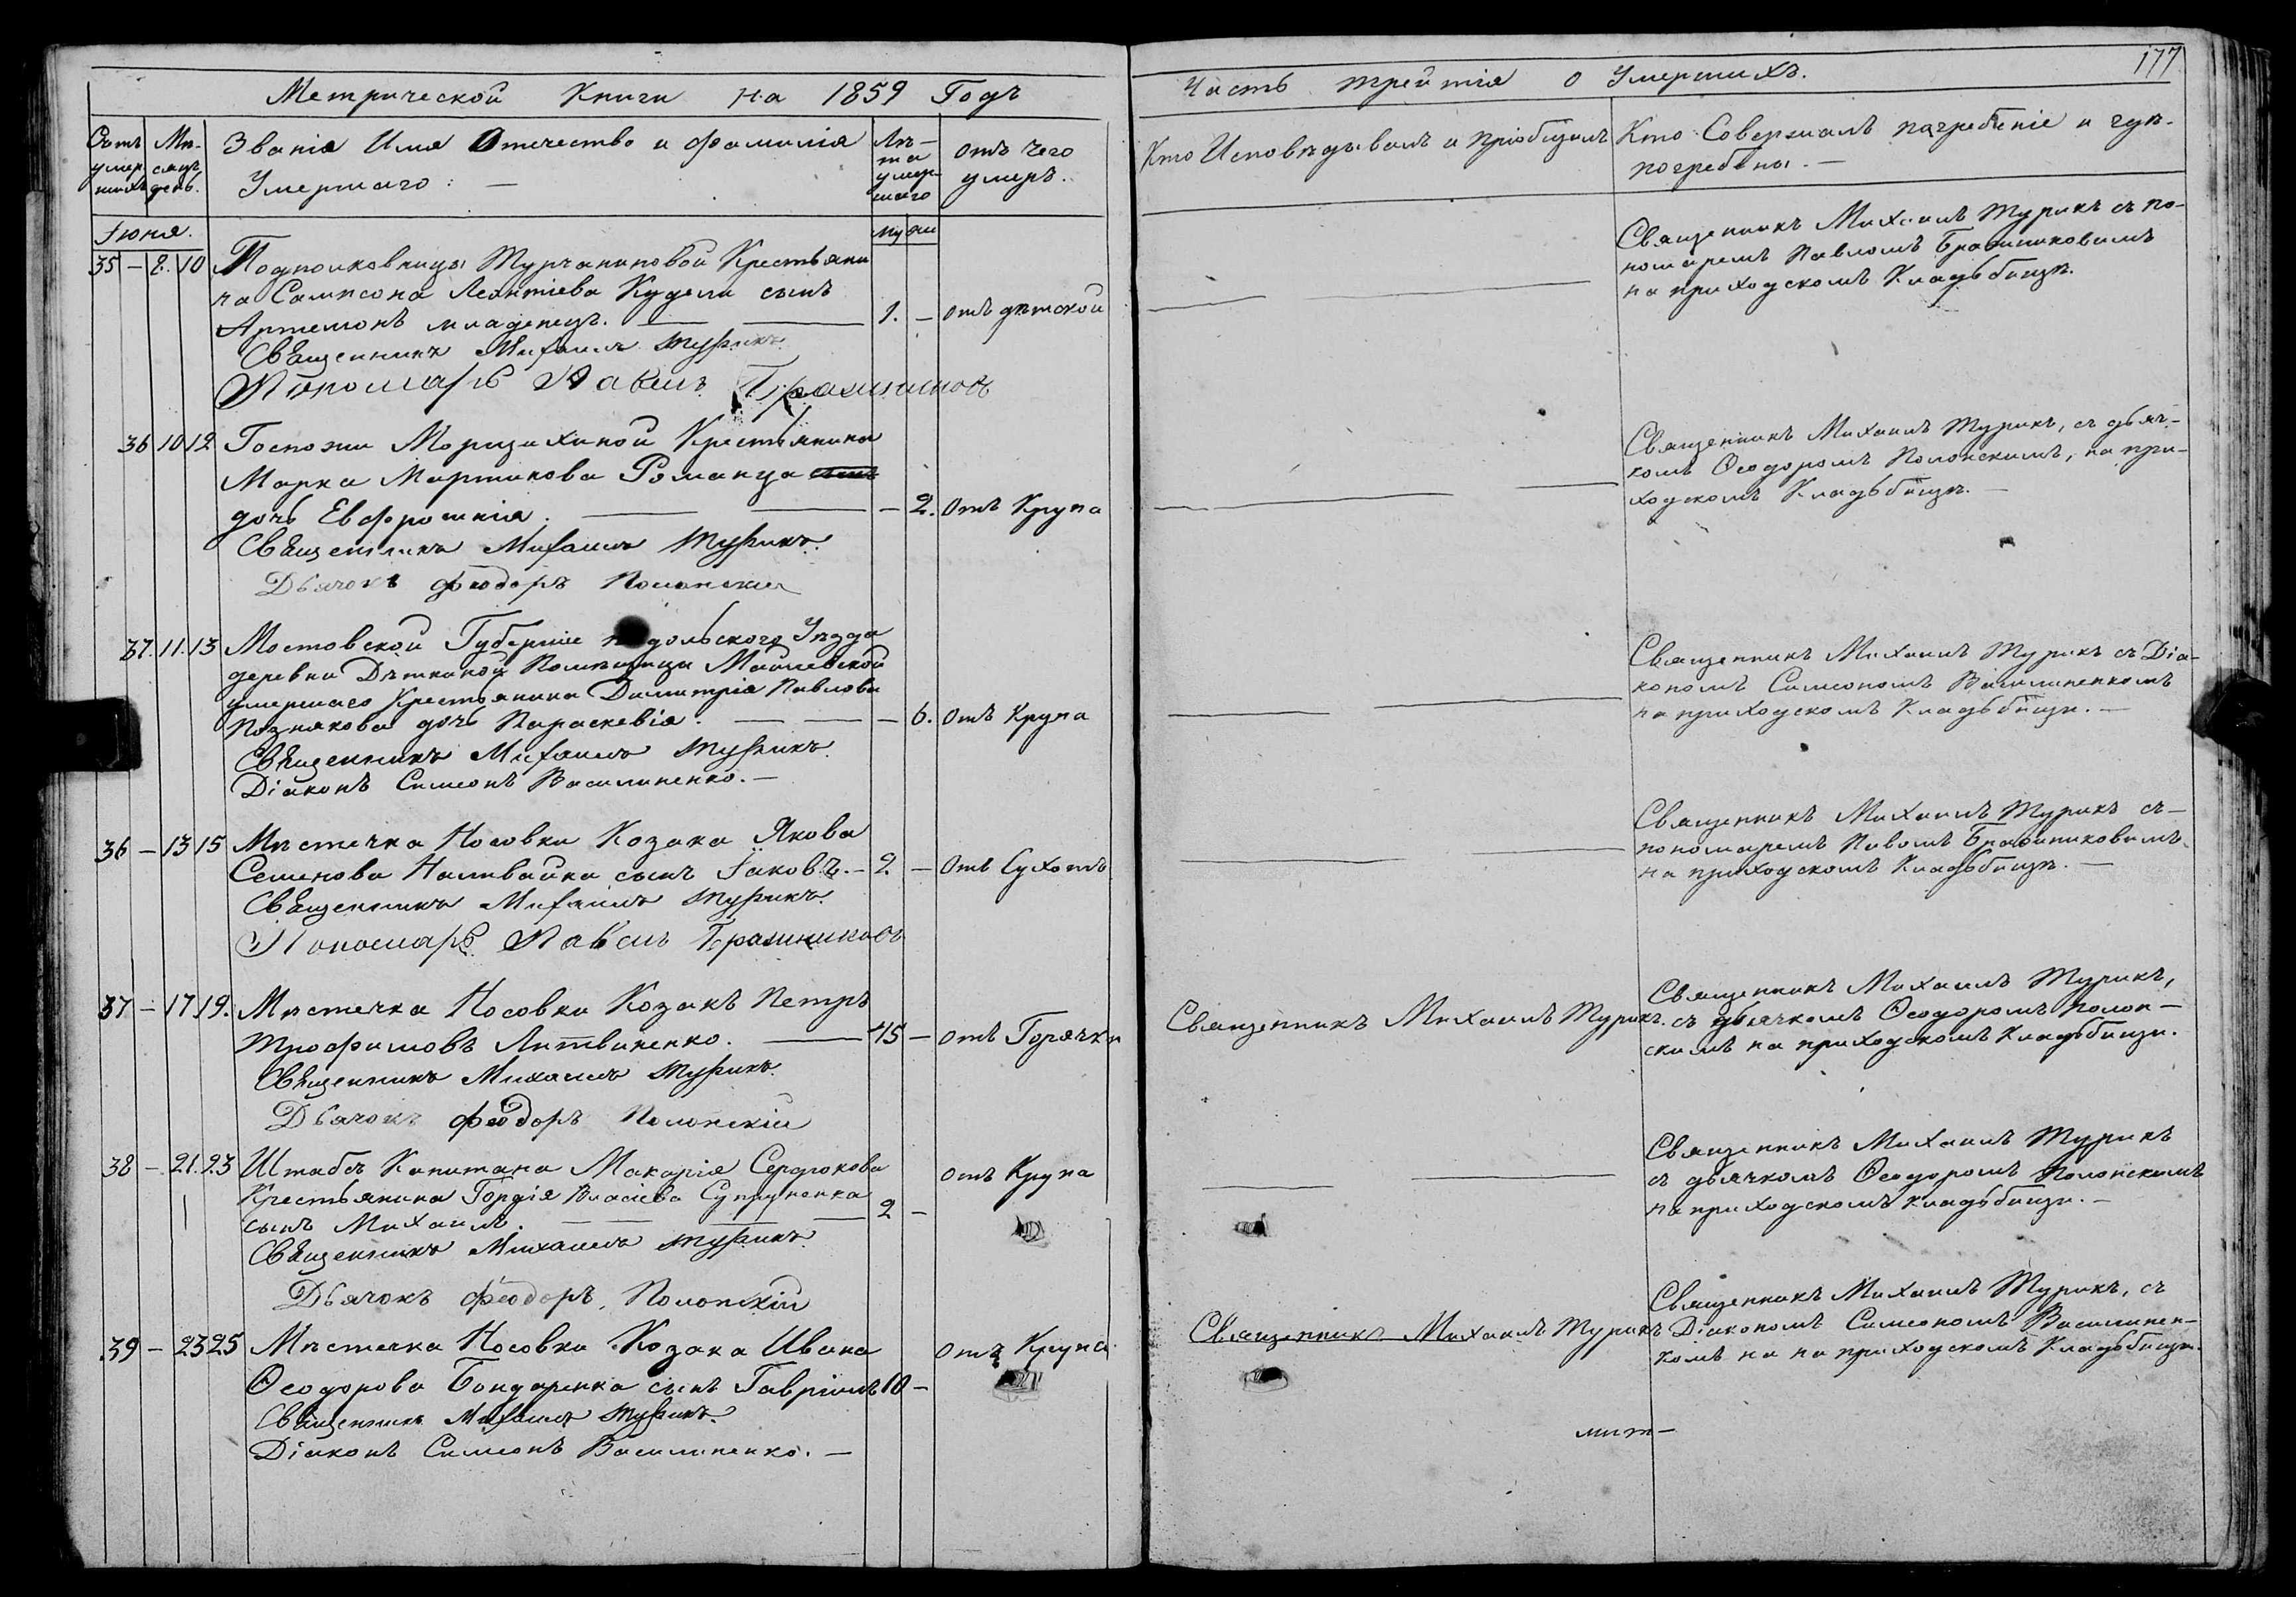 Метрической Книги на 1859 Годъ
Счетъ умершихъ
Мѣсяцъ день.
Званія Имя Отечество и фамилія
Умершаго: —
Лѣта умершаго
отъ чего
умеръ.
Іюня.
му же
35 – 8. 10 Подполковницы Турчаниновой Крестьяни
на Сампсона Леонтіева Кудели сынъ
Артемонъ младенецъ. — 1. — отъ дѣтской
Священникъ Михаилъ Турикъ.
Пономарь Павелъ Бражниковъ
36 10 12 Госпожи Моризихиной Крестьянина
Марка Мартинова Романца
дочь Евфросинія. — — 2. отъ Крупа
Священникъ Михаилъ Турикъ.
Дьячокъ Феодоръ Полонскій
37. 11. 13 Московской Губерніи подольского Уѣзда
деревни Дѣткиной Помѣщицы
умершаго Крестьянина Димитрія Павлова
Познякова дочь Параскевія. — — 6. отъ Крупа
Священникъ Михаилъ Турикъ.
Діаконъ Симеонъ Василиненко. —
36 – 13 15 Мѣстечка Носовки Козака Якова
Семенова Наливайка сынъ Іаковъ. – 2. — отъ Сухотъ
Священникъ Михаилъ Турикъ.
Пономарь Павелъ Бражниковъ
37 – 17 19. Мѣстечка Носовки Козакъ Петръ
Трофимовъ Литвиненко. — 45 — отъ Горячки
Священникъ Михаилъ Турикъ.
Дьячокъ Феодоръ Полонскій
38 – 21. 23 Штабсъ Капитана Макарія Сердюкова
Крестьянина Гордія Власіева Супруненка
сынъ Михаилъ. — 2 — отъ Крупа
Священникъ Михаилъ Турикъ.
Дьячокъ Феодоръ Полонскій
39 – 23 25 Мѣстечка Носовки Козака Ивана
Ѳеодорова Бондаренка сынъ Гавріилъ 10 — отъ Крупа
Священникъ Михаилъ Турикъ.
Діаконъ Симеонъ Василиненко. —
177
Часть трейтія о Умершихъ.
Кто Исповѣдывалъ и пріобщалъ
Кто Совершалъ погребеніе и гдѣ
погребены. —
Священникъ Михаилъ Турикъ съ по-
номаремъ Павломъ Бражниковымъ
на приходскомъ Кладьбищѣ.
Священникъ Михаилъ Турикъ, съ дьяч-
комъ Ѳеодоромъ Полонскимъ, на при-
ходскомъ Кладьбищѣ. —
Священникъ Михаилъ Турикъ съ Діа-
кономъ Симеономъ Василиненкомъ
на приходскомъ Кладьбищѣ. —
Священникъ Михаилъ Турикъ съ —
пономаремъ Павломъ Бражниковымъ
на приходскомъ Кладьбищѣ. —
Священникъ Михаилъ Турикъ.
Священникъ Михаилъ Турикъ,
съ дьячкомъ Ѳеодоромъ Полон-
скимъ на приходскомъ Кладьбищѣ.
Священникъ Михаилъ Турикъ
съ дьячкомъ Ѳеодоромъ Полонскимъ
на приходскомъ кладьбищѣ. —
Священникъ Михаилъ Турикъ
Священникъ Михаилъ Турикъ, съ
Діакономъ Симеономъ Василинен-
комъ на на приходскомъ Кладьбищѣ.